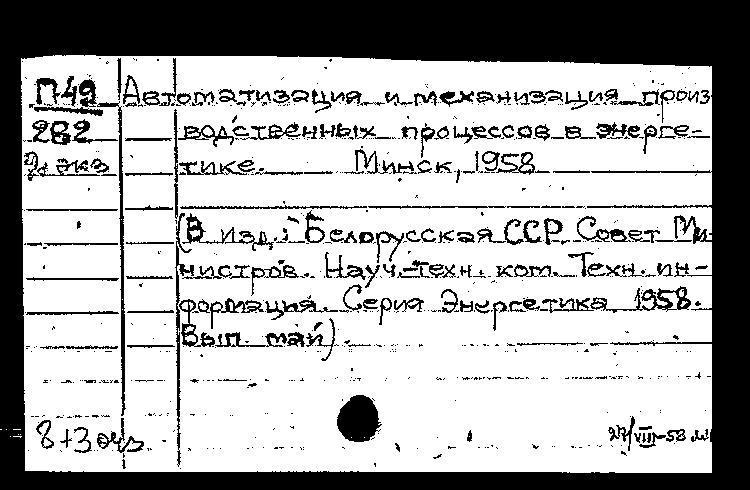 П49 Автоматизация и механизация произ
282 водственных процессов в энерге-
экз тике. Минск, 1958
(В изд.: Белорусская ССР. Совет Ми-
нистров. Науч.-техн. ком. Техн. ин-
формация. Серия Энергетика 1958.
Вып. май).
8+3
27/VIII-58